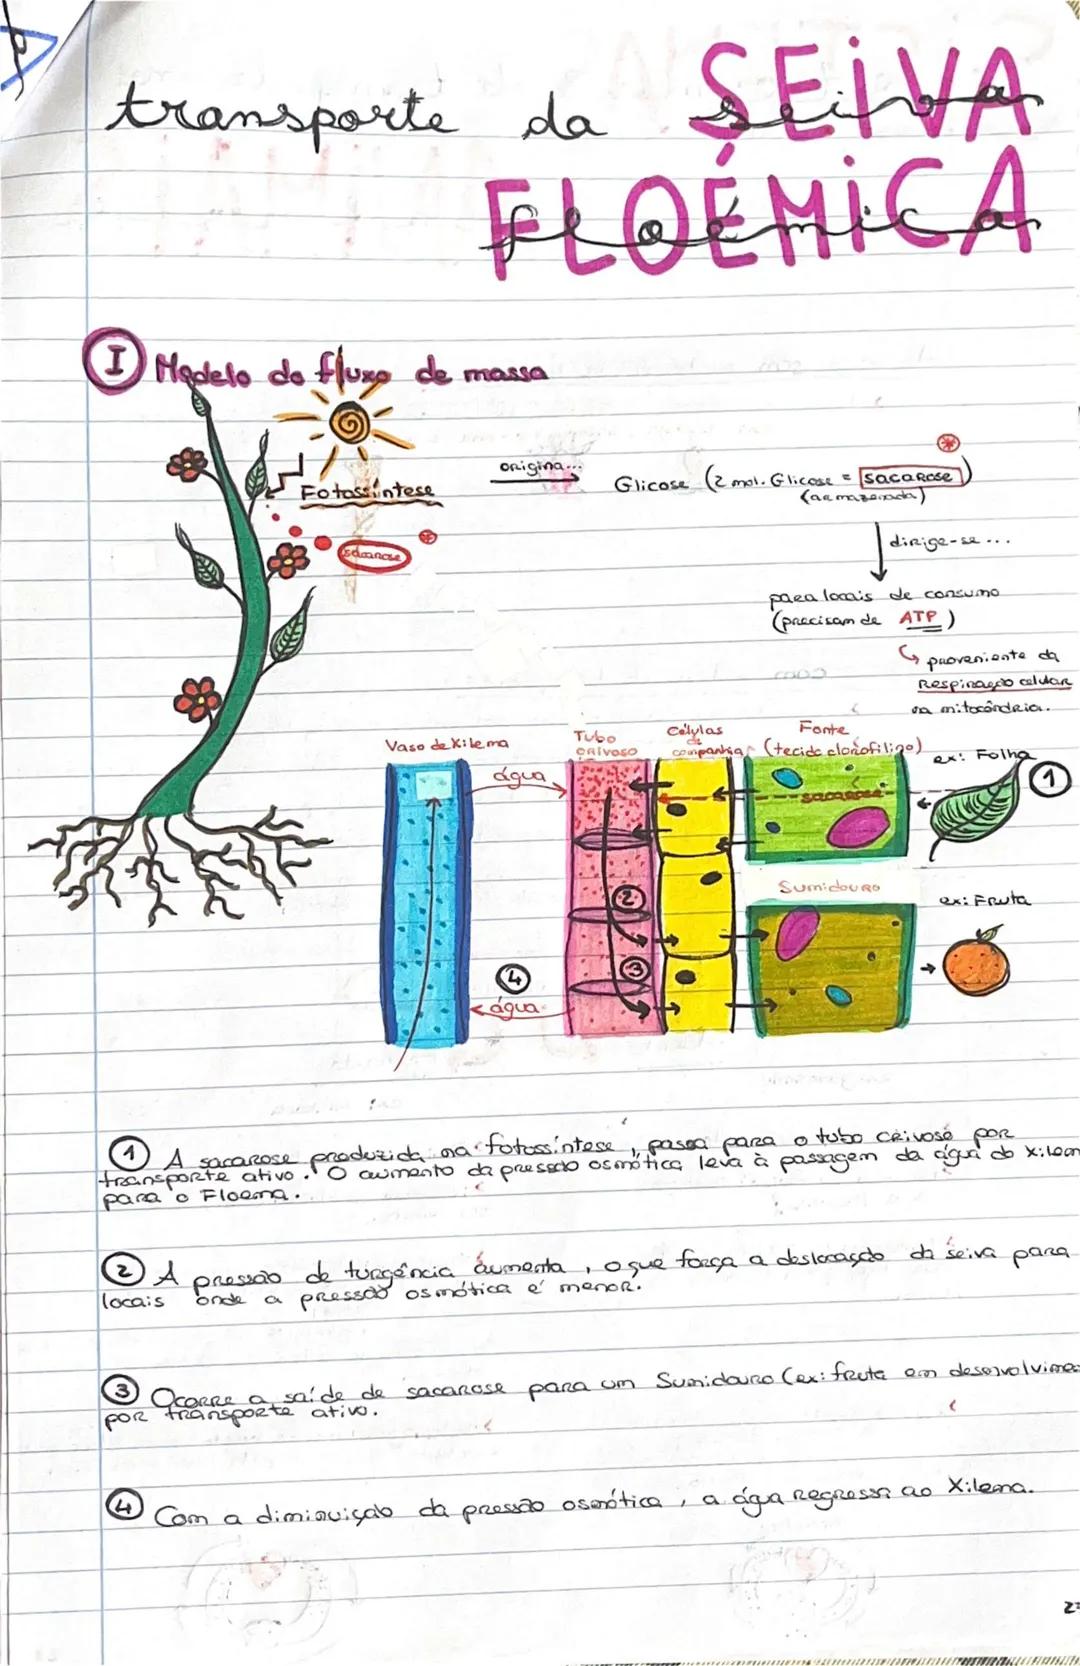 transporte da SEIVA seiva
FLOÉMICA floémica
I Modelo do fluxo de massa
Fotossíntese
origina...
Glicose (2 mol. Glicose = sacarose)
(armazenada)
sacarose
dirige-se ...
para locais de consumo
(precisam de ATP)
proveniente da
Respiração celular
na mitocôndria.
Vaso de Xilema
Tubo
crivoso
Células
de
companhia
Fonte
(tecido clorofilino)
ex: Folha
1
água
sacarose
Sumidouro
ex: Fruta
2
3
4
água
1 A sacarose produzida na fotossíntese, passa para o tubo crivoso por
transporte ativo. O aumento da pressão osmótica leva à passagem da água do Xilem
para o Floema.
2 A pressão de turgência aumenta, o que força a deslocação da seiva para
locais onde a pressão osmótica é menor.
3 Ocorre a saíde de sacarose para um Sumidouro (ex: fruta em desenvolvime
por transporte ativo.
4 Com a diminuição da pressão osmótica, a água regressa ao Xilema.